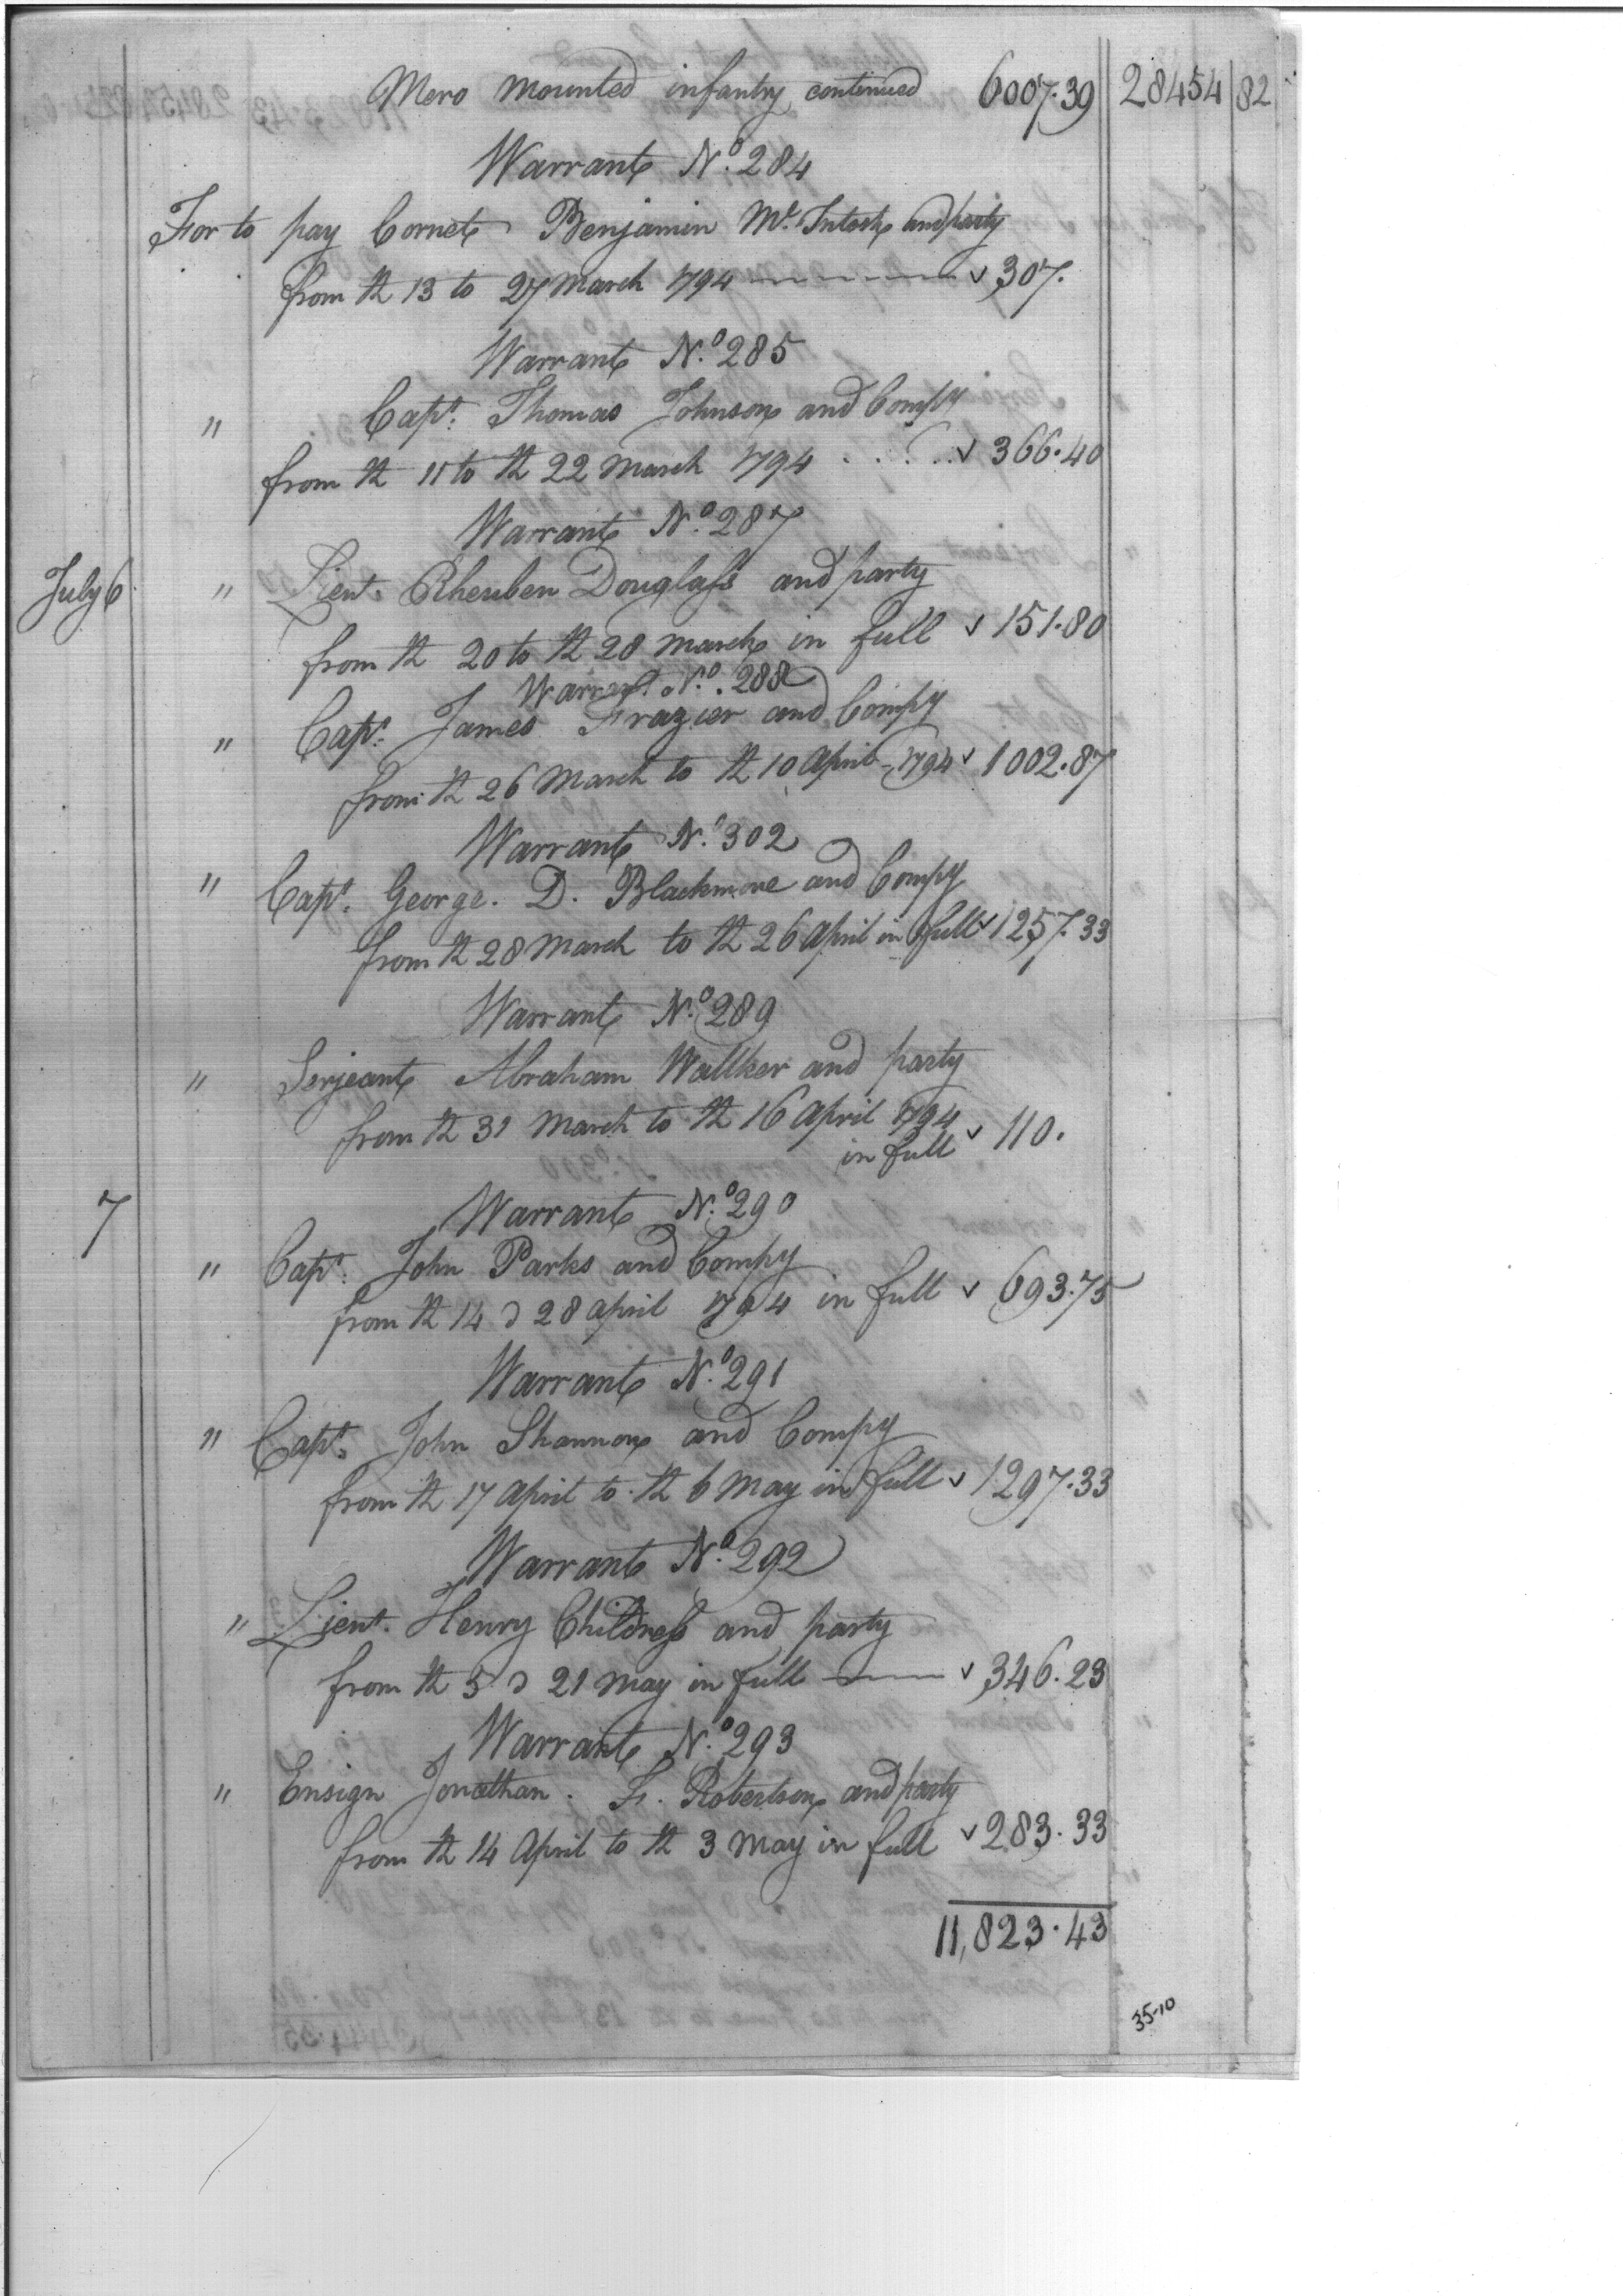 Mero mounted infantry continued 6007.39 28454 82
Warrant No. 284
For to pay Cornet Benjamin Mc. Intosh and party
from th 13 to 27 March 1794 307.
Warrant No. 285
" Capt. Thomas Johnson and Compy
from th 11 to th 22 March 1794 .... 366.40
Warrant No. 287
July 6. " Lieut. Rheuben Douglass and party
from th 20 to th 28 march in full 151.80
Warrant No. 288
" Capt. James Frazier and Compy
from th 26 March to th 10 april 1794 1002.87
Warrant No. 302
" Capt. George. D. Blackmore and Compy
from th 28 March to th 26 April in full 1257.33
Warrant No. 289
" Serjeant Abraham Wallker and party
from th 31 March to th 16 April 1794
in full 110.
7 Warrant No. 290
" Capt. John Parks and Compy
from th 14 d 28 april 1794 in full 693.75
Warrant No. 291
" Capt. John Shannon and Compy
from th 17 April to th 6 May in full 1297.33
Warrant No. 292
" Lieut. Henry Childress and party
from th 5 d 21 May in full 346.23
Warrant No. 293
" Ensign Jonathan. F. Robertson and party
from th 14 April to th 3 May in full 283.33
11,823.43
35-10